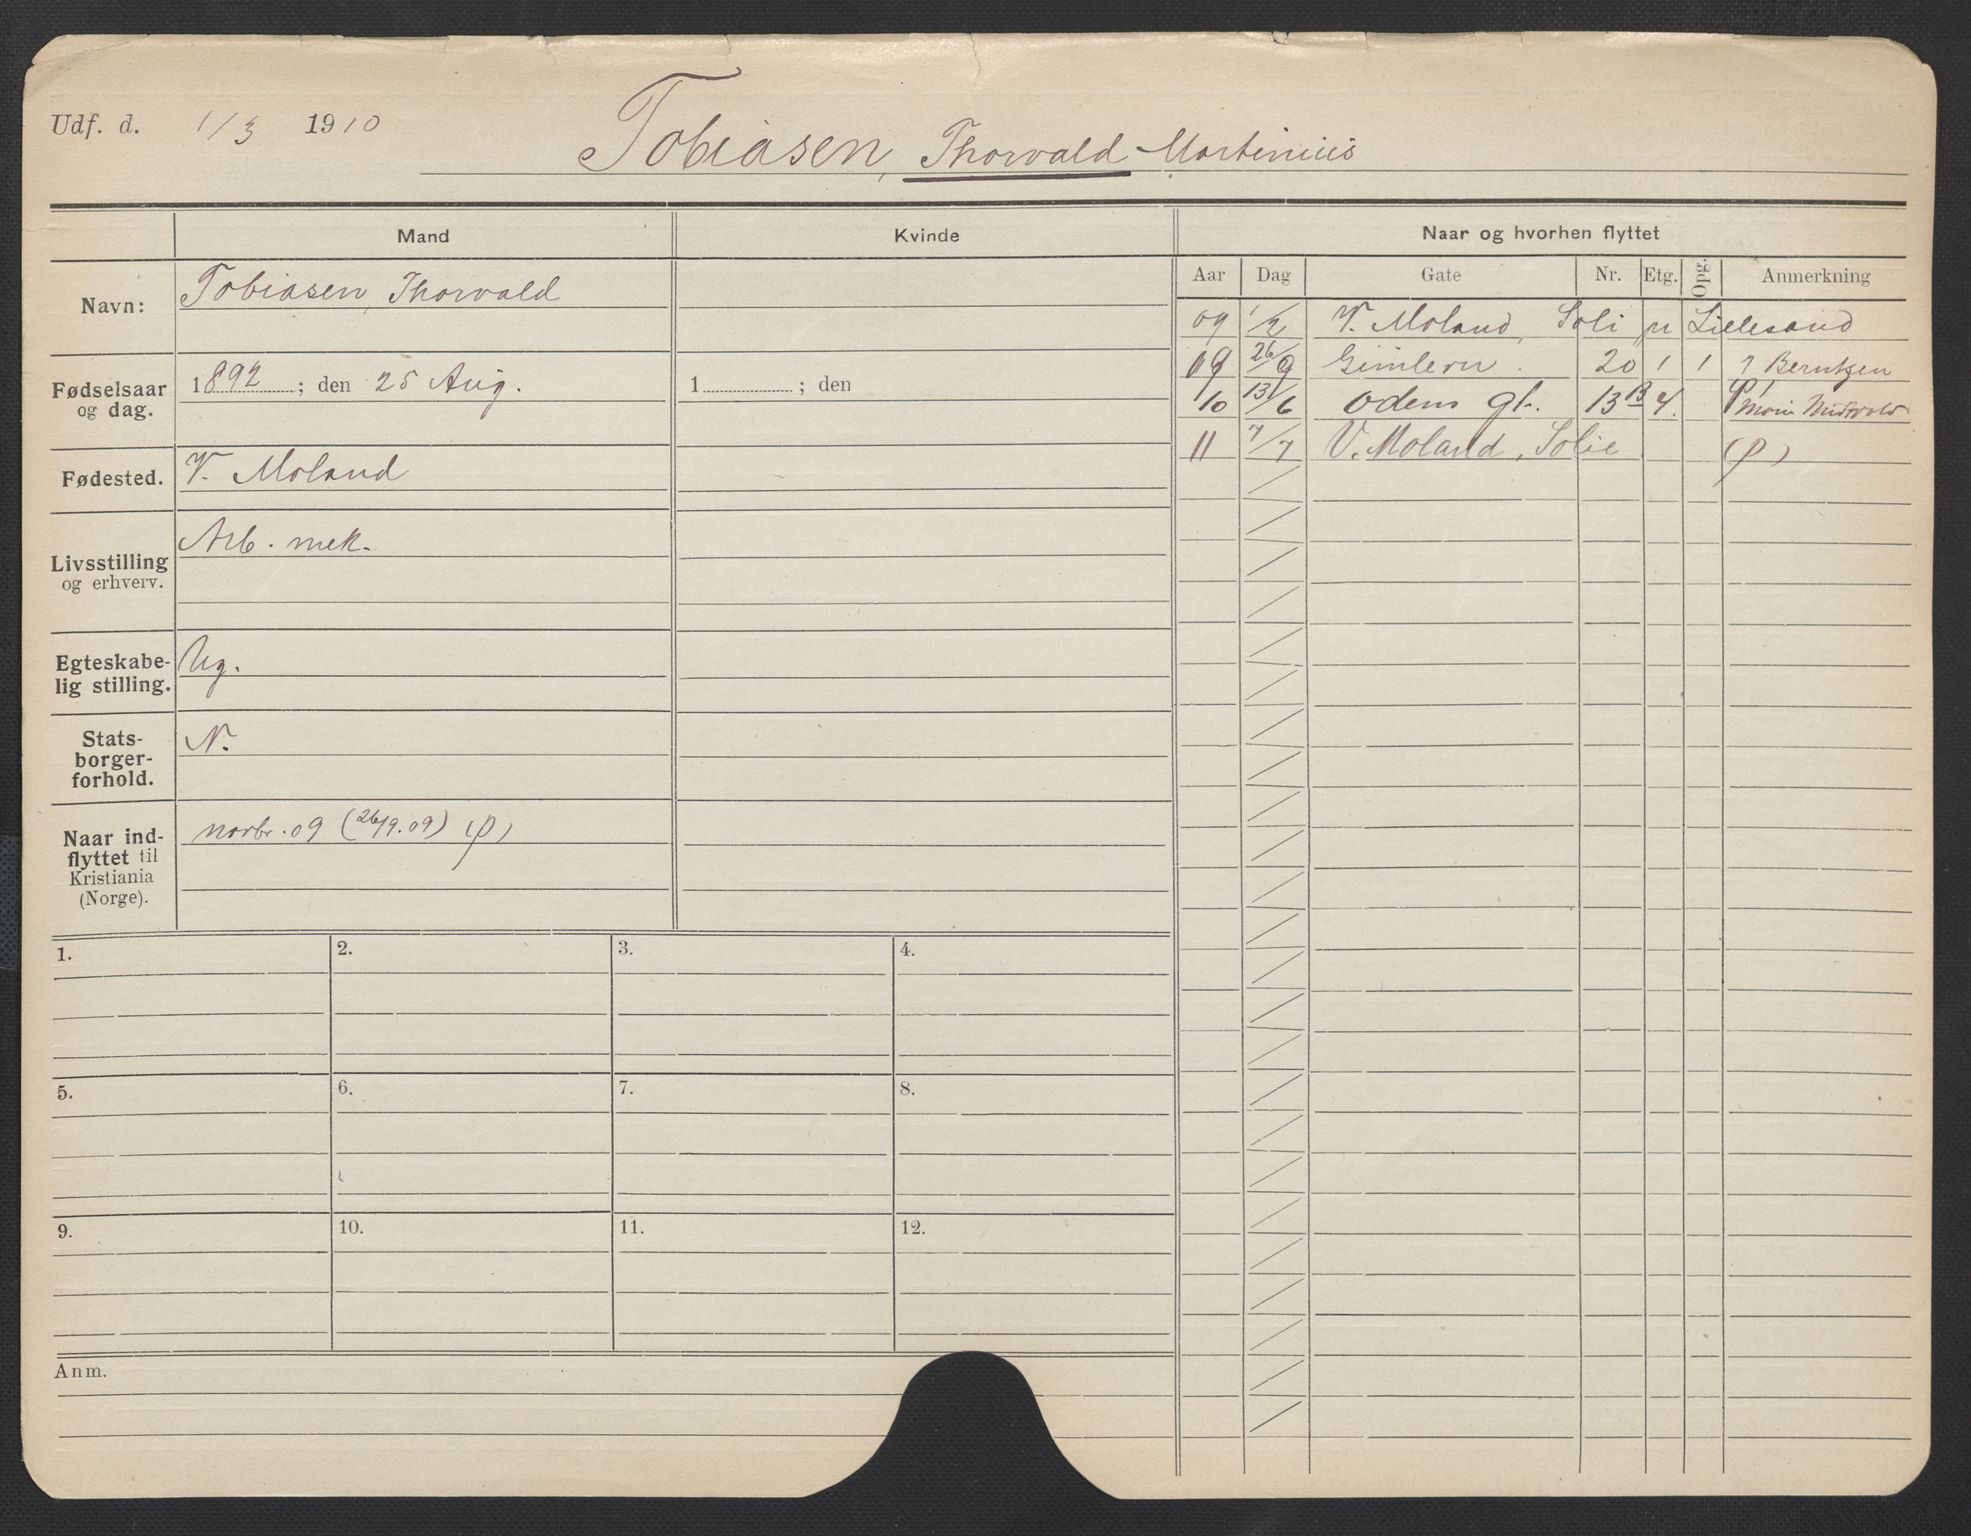 Udf. d. 1/3 1910
Tobiasen, Thorvald Martinius
Mand
Kvinde
Naar og hvorhen flyttet
Aar Dag Gate Nr. Etg. Opg. Anmerkning
Navn:
Tobiasen, Thorvald
Fødselsaar
og dag.
1892 ; den 25 Aug.
1 ; den
Fødested.
V. Moland
Livsstilling
og erhverv.
Arb. mek.
Egteskabe-
lig stilling.
Ug.
Stats-
borger-
forhold.
N.
Naar ind-
flyttet til
Kristiania
(Norge).
novbr. 09 (26/9.09) (p)
09 1/2 V. Moland, Soli pr Lillesand
09 26/9 Gimlevn. 20 1 1 Berntzen
10 13/6 Odens gt. 13B 4.
11 7/7 V. Moland, Solie (p)
1.
2.
3.
4.
5.
6.
7.
8.
9.
10.
11.
12.
Anm.